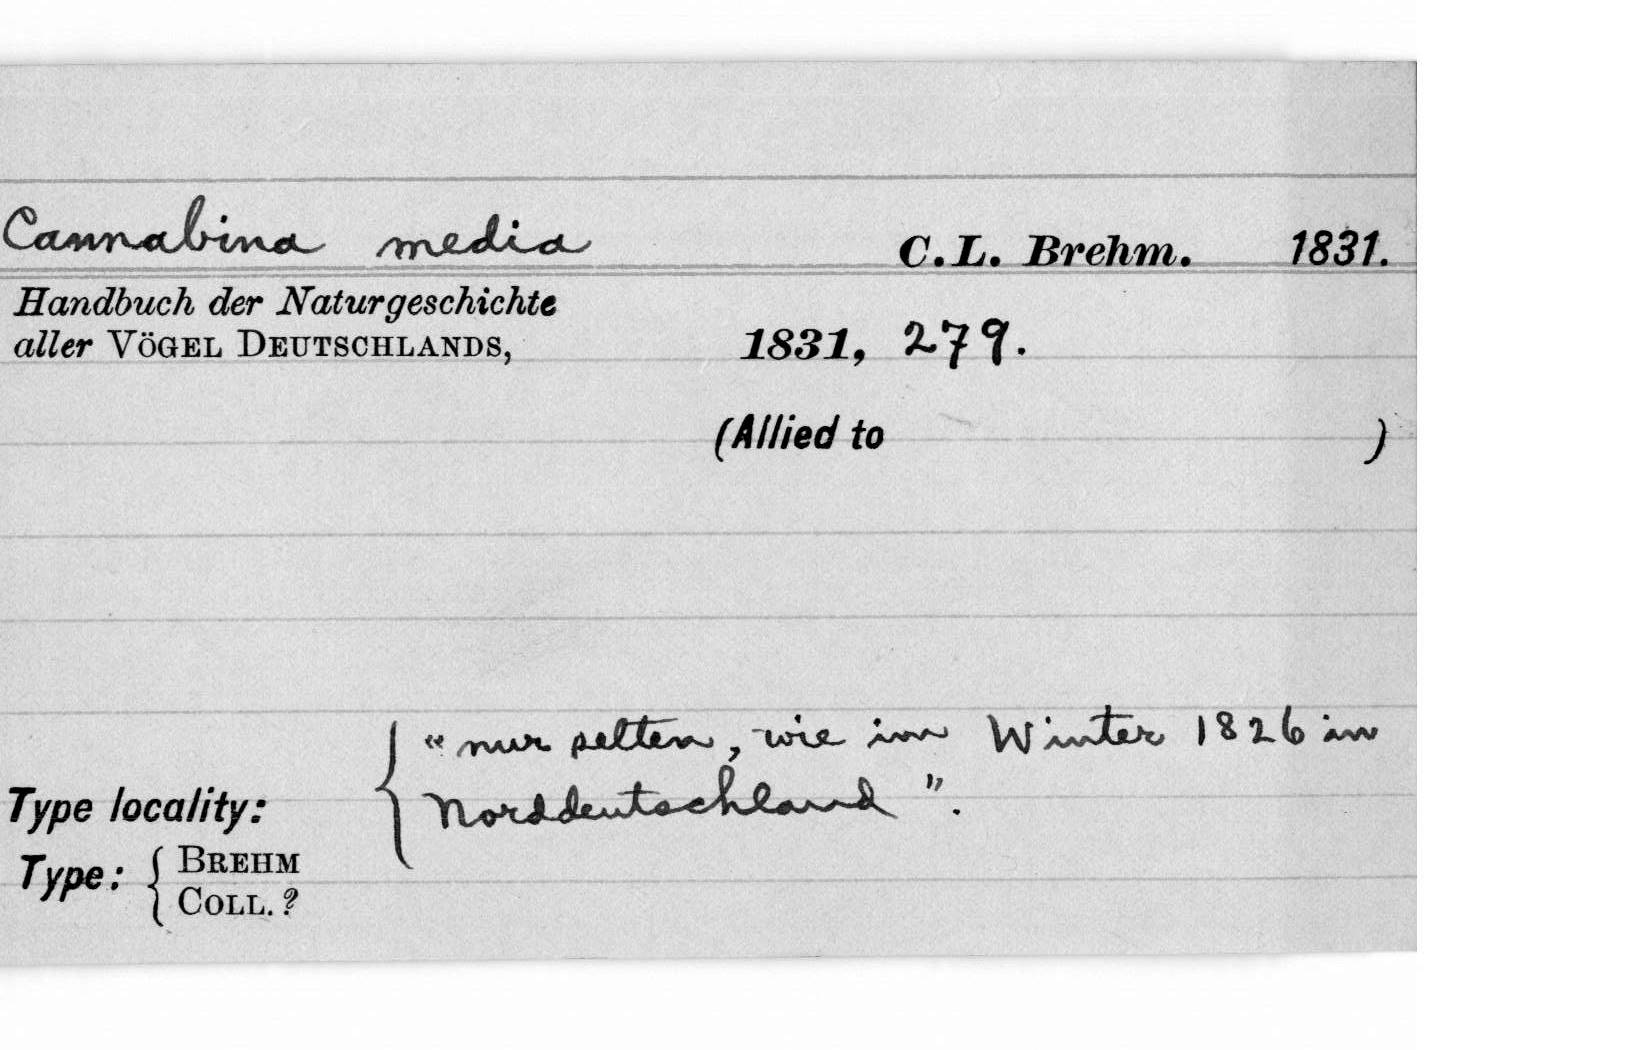 Cannabina media C. L. Brehm. 1831.
Handbuch der Naturgeschichte
aller VÖGEL DEUTSCHLANDS, 1831, 279.
(Allied to )
"nur selten, wie im Winter 1826 in
Type locality: Norddeutschland".
Type: { BREHM
COLL. ?